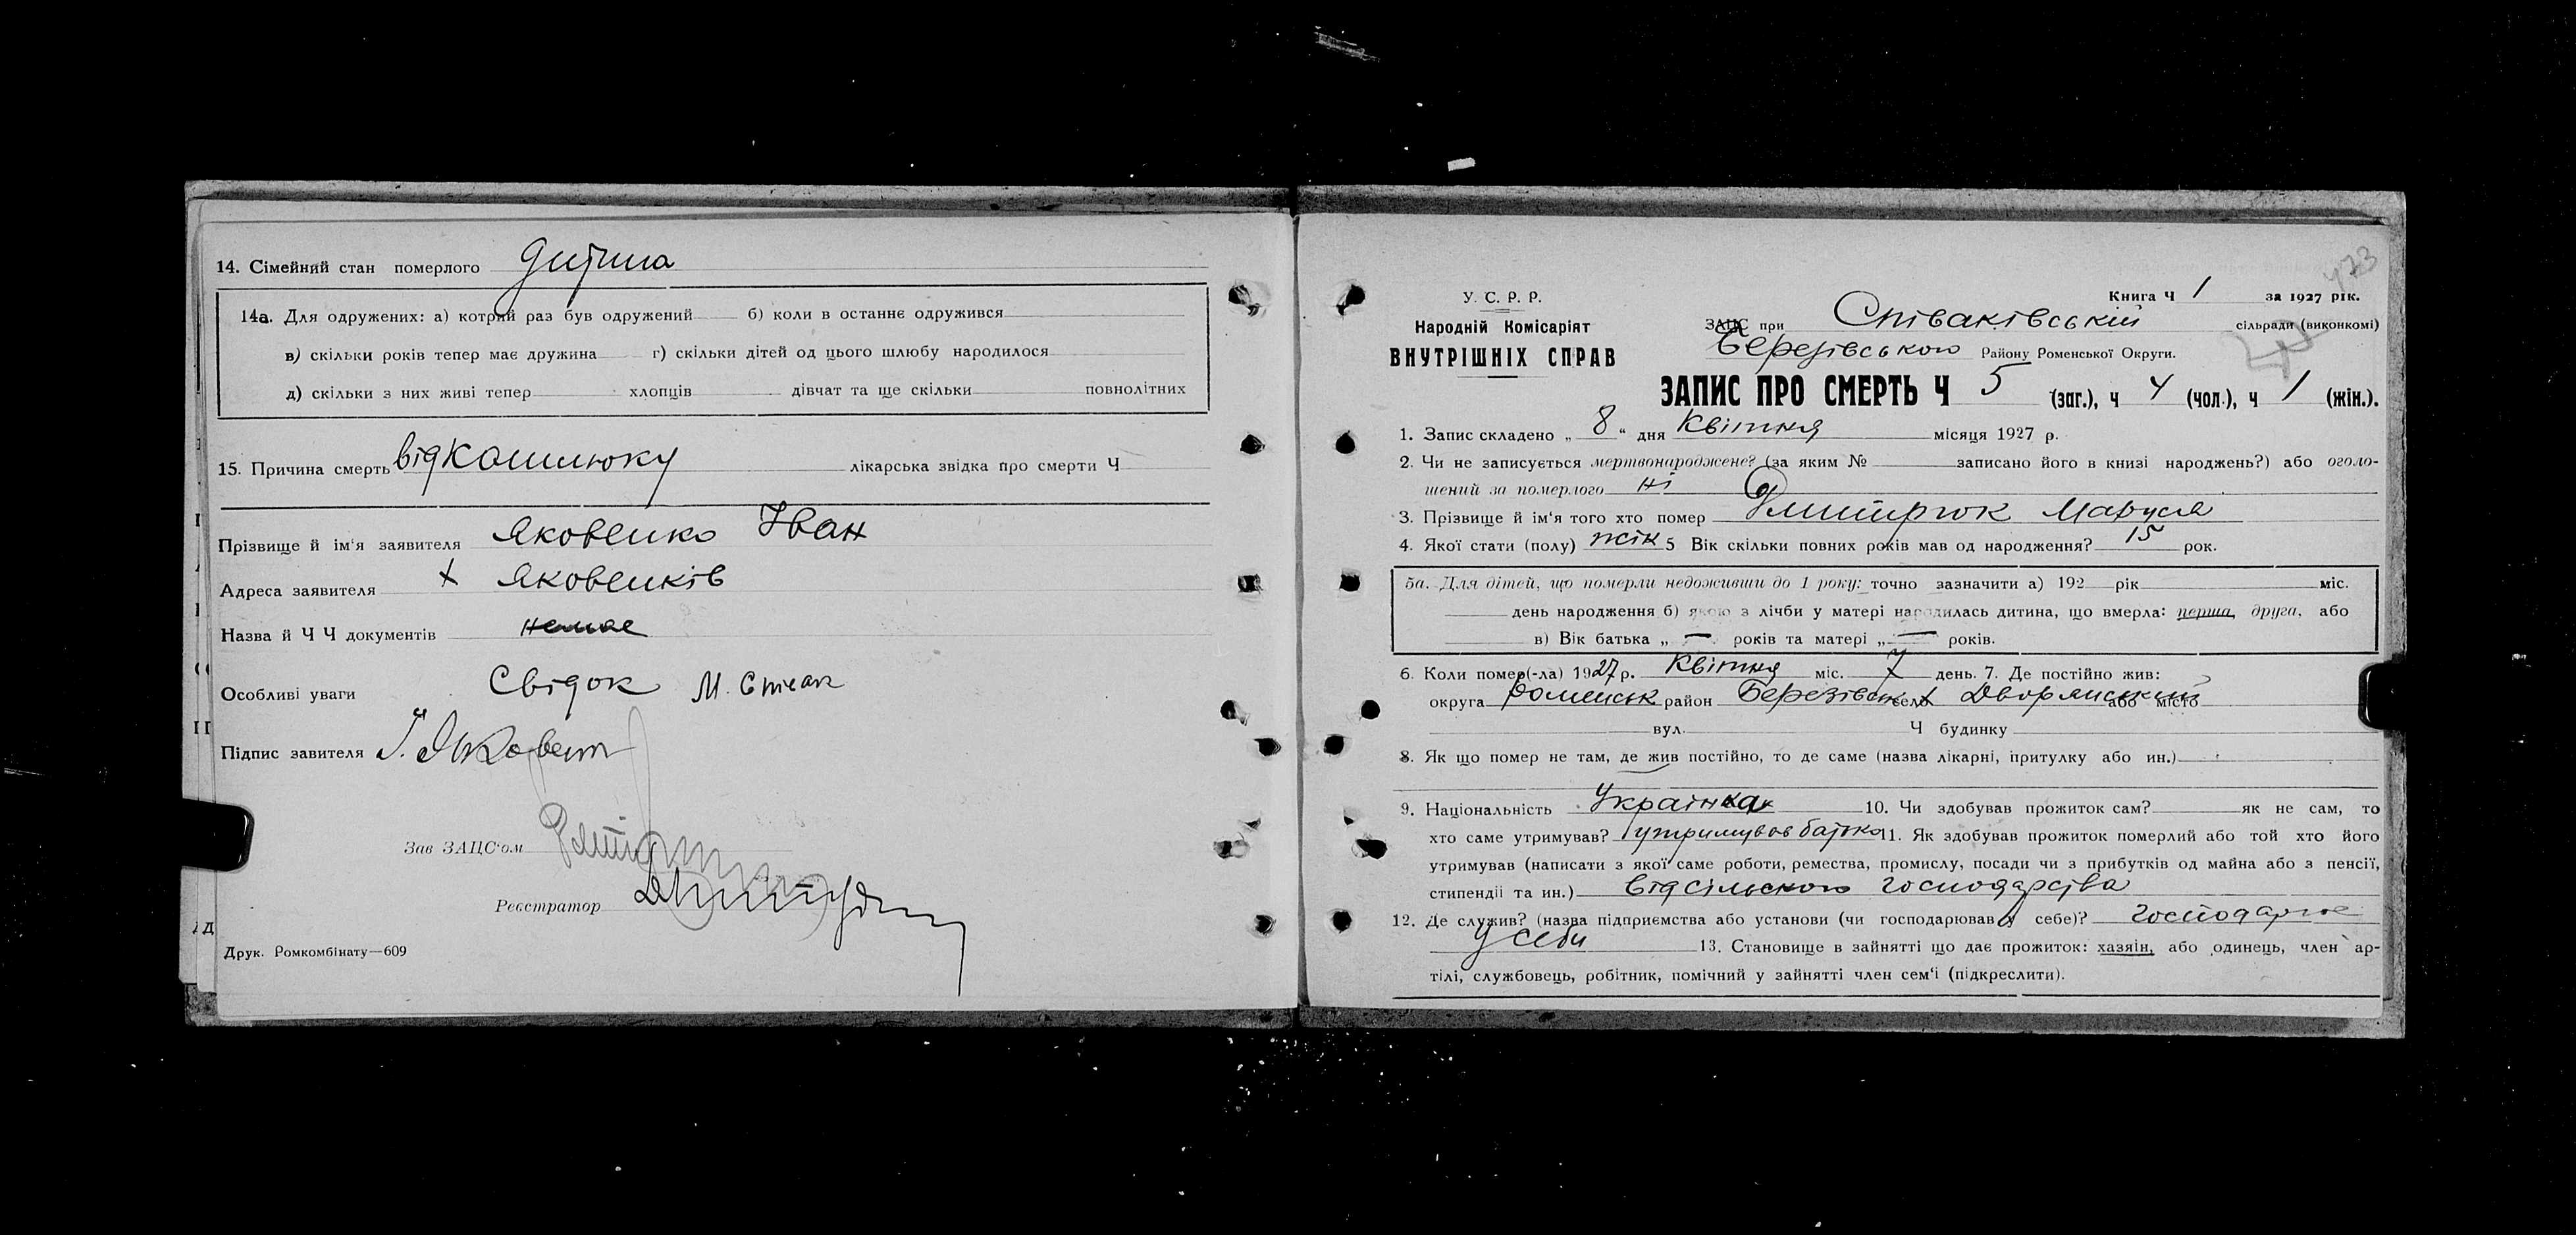 14. Сімейний стан померлого дитина
14а. Для одружених: а) котрий раз був одружений б) коли в останнє одружився
в) скільки років тепер має дружина г) скільки дітей од цього шлюбу народилося
д) скільки з них живі тепер хлопців дівчат та ще скільки повнолітних
15. Причина смерть від Кашлюку лікарська звідка про смерти Ч
Прізвище й ім'я заявителя Яковенко Іван
Адреса заявителя х Яковенків
Назва й Ч Ч документів немає
Особливі уваги Свідок М. Співак
Підпис завителя І. Яковен
Зав ЗАЦС'ом
Реєстратор
Друк. Ромкомбінату—609
473
У. С. Р. Р.
Народній Комісаріят
ВНУТРІШНІХ СПРАВ
Книга Ч 1 за 1927 рік.
ЗАЦС при Співаківській сільради (виконкомі)
Березівського Району Роменської Округи.
ЗАПИС ПРО СМЕРТЬ Ч 5 (заг.), ч 4 (чол.), ч 1 (жін.).
1. Запис складено „ 8 “ дня Квітня місяця 1927 р.
2. Чи не записується мертвонароджене? (за яким № записано його в книзі народжень?) або оголо-
шений за померлого ні
3. Прізвище й ім'я того хто помер Дмитрюк Маруся
4. Якої стати (полу) жін 5 Вік скільки повних років мав од народження? 15 рок.
5а. Для дітей, що померли недоживши до 1 року: точно зазначити а) 192 рік міс.
день народження б) якою з лічби у матері народилась дитина, що вмерла: перша, друга, або
в) Вік батька „ — років та матері „ — років.
6. Коли помер(-ла) 1927 р. Квітня міс. 7 день. 7. Де постійно жив:
округа Роменськ район Березівськ село х Дворянський або місто
вул. Ч будинку
8. Як що помер не там, де жив постійно, то де саме (назва лікарні, притулку або ин.)
9. Національність Українка 10. Чи здобував прожиток сам? як не сам, то
хто саме утримував? утримував батько 11. Як здобував прожиток померлий або той хто його
утримував (написати з якої саме роботи, ремества, промислу, посади чи з прибутків од майна або з пенсії,
стипендії та ин.) від сільского господарства
12. Де служив? (назва підприємства або установи (чи господарював у себе)? господарює
у себе 13. Становище в зайнятті що дає прожиток: хазяін, або одинець, член ар-
тілі, службовець, робітник, помічний у зайнятті член сем'і (підкреслити).